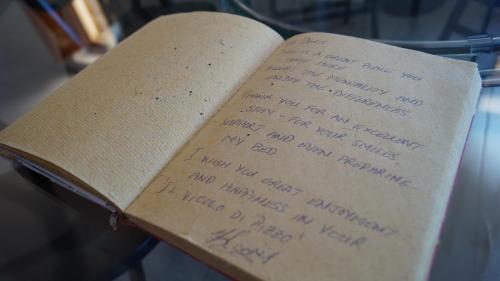 IS A GREAT PLACE YOU
HAVE HERE
THE MENTALITY AND
ENJOY THE DIFFERENCES
THANK YOU FOR AN EXCELLENT
STAY - FOR YOUR SMILES,
SUPPORT AND EVEN PREPARING
MY BED
I WISH YOU GREAT ENJOYMENT
AND HAPPINESS IN YOUR
"IL VICOLO DI PIZZO"